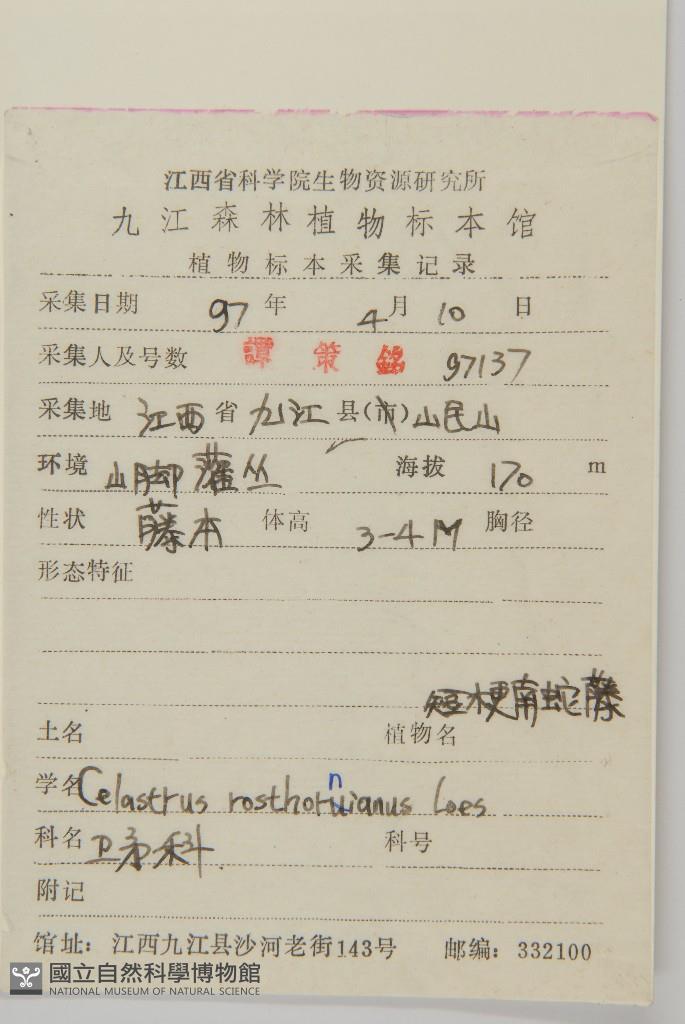 江西省科学院生物资源研究所
九江森林植物标本馆
植物标本采集记录
采集日期 97 年 4 月 10 日
采集人及号数 譚策銘 97137
采集地 江西 省 九江 县(市) 山民山
环境 山脚灌丛 海拔 170 m
性状 藤本 体高 3-4M 胸径
形态特征
短梗南蛇藤
土名 植物名
学名 Celastrus rosthornianus Loes
科名 卫矛科 科号
附记
馆址：江西九江县沙河老街143号 邮编：332100
國立自然科學博物館
NATIONAL MUSEUM OF NATURAL SCIENCE